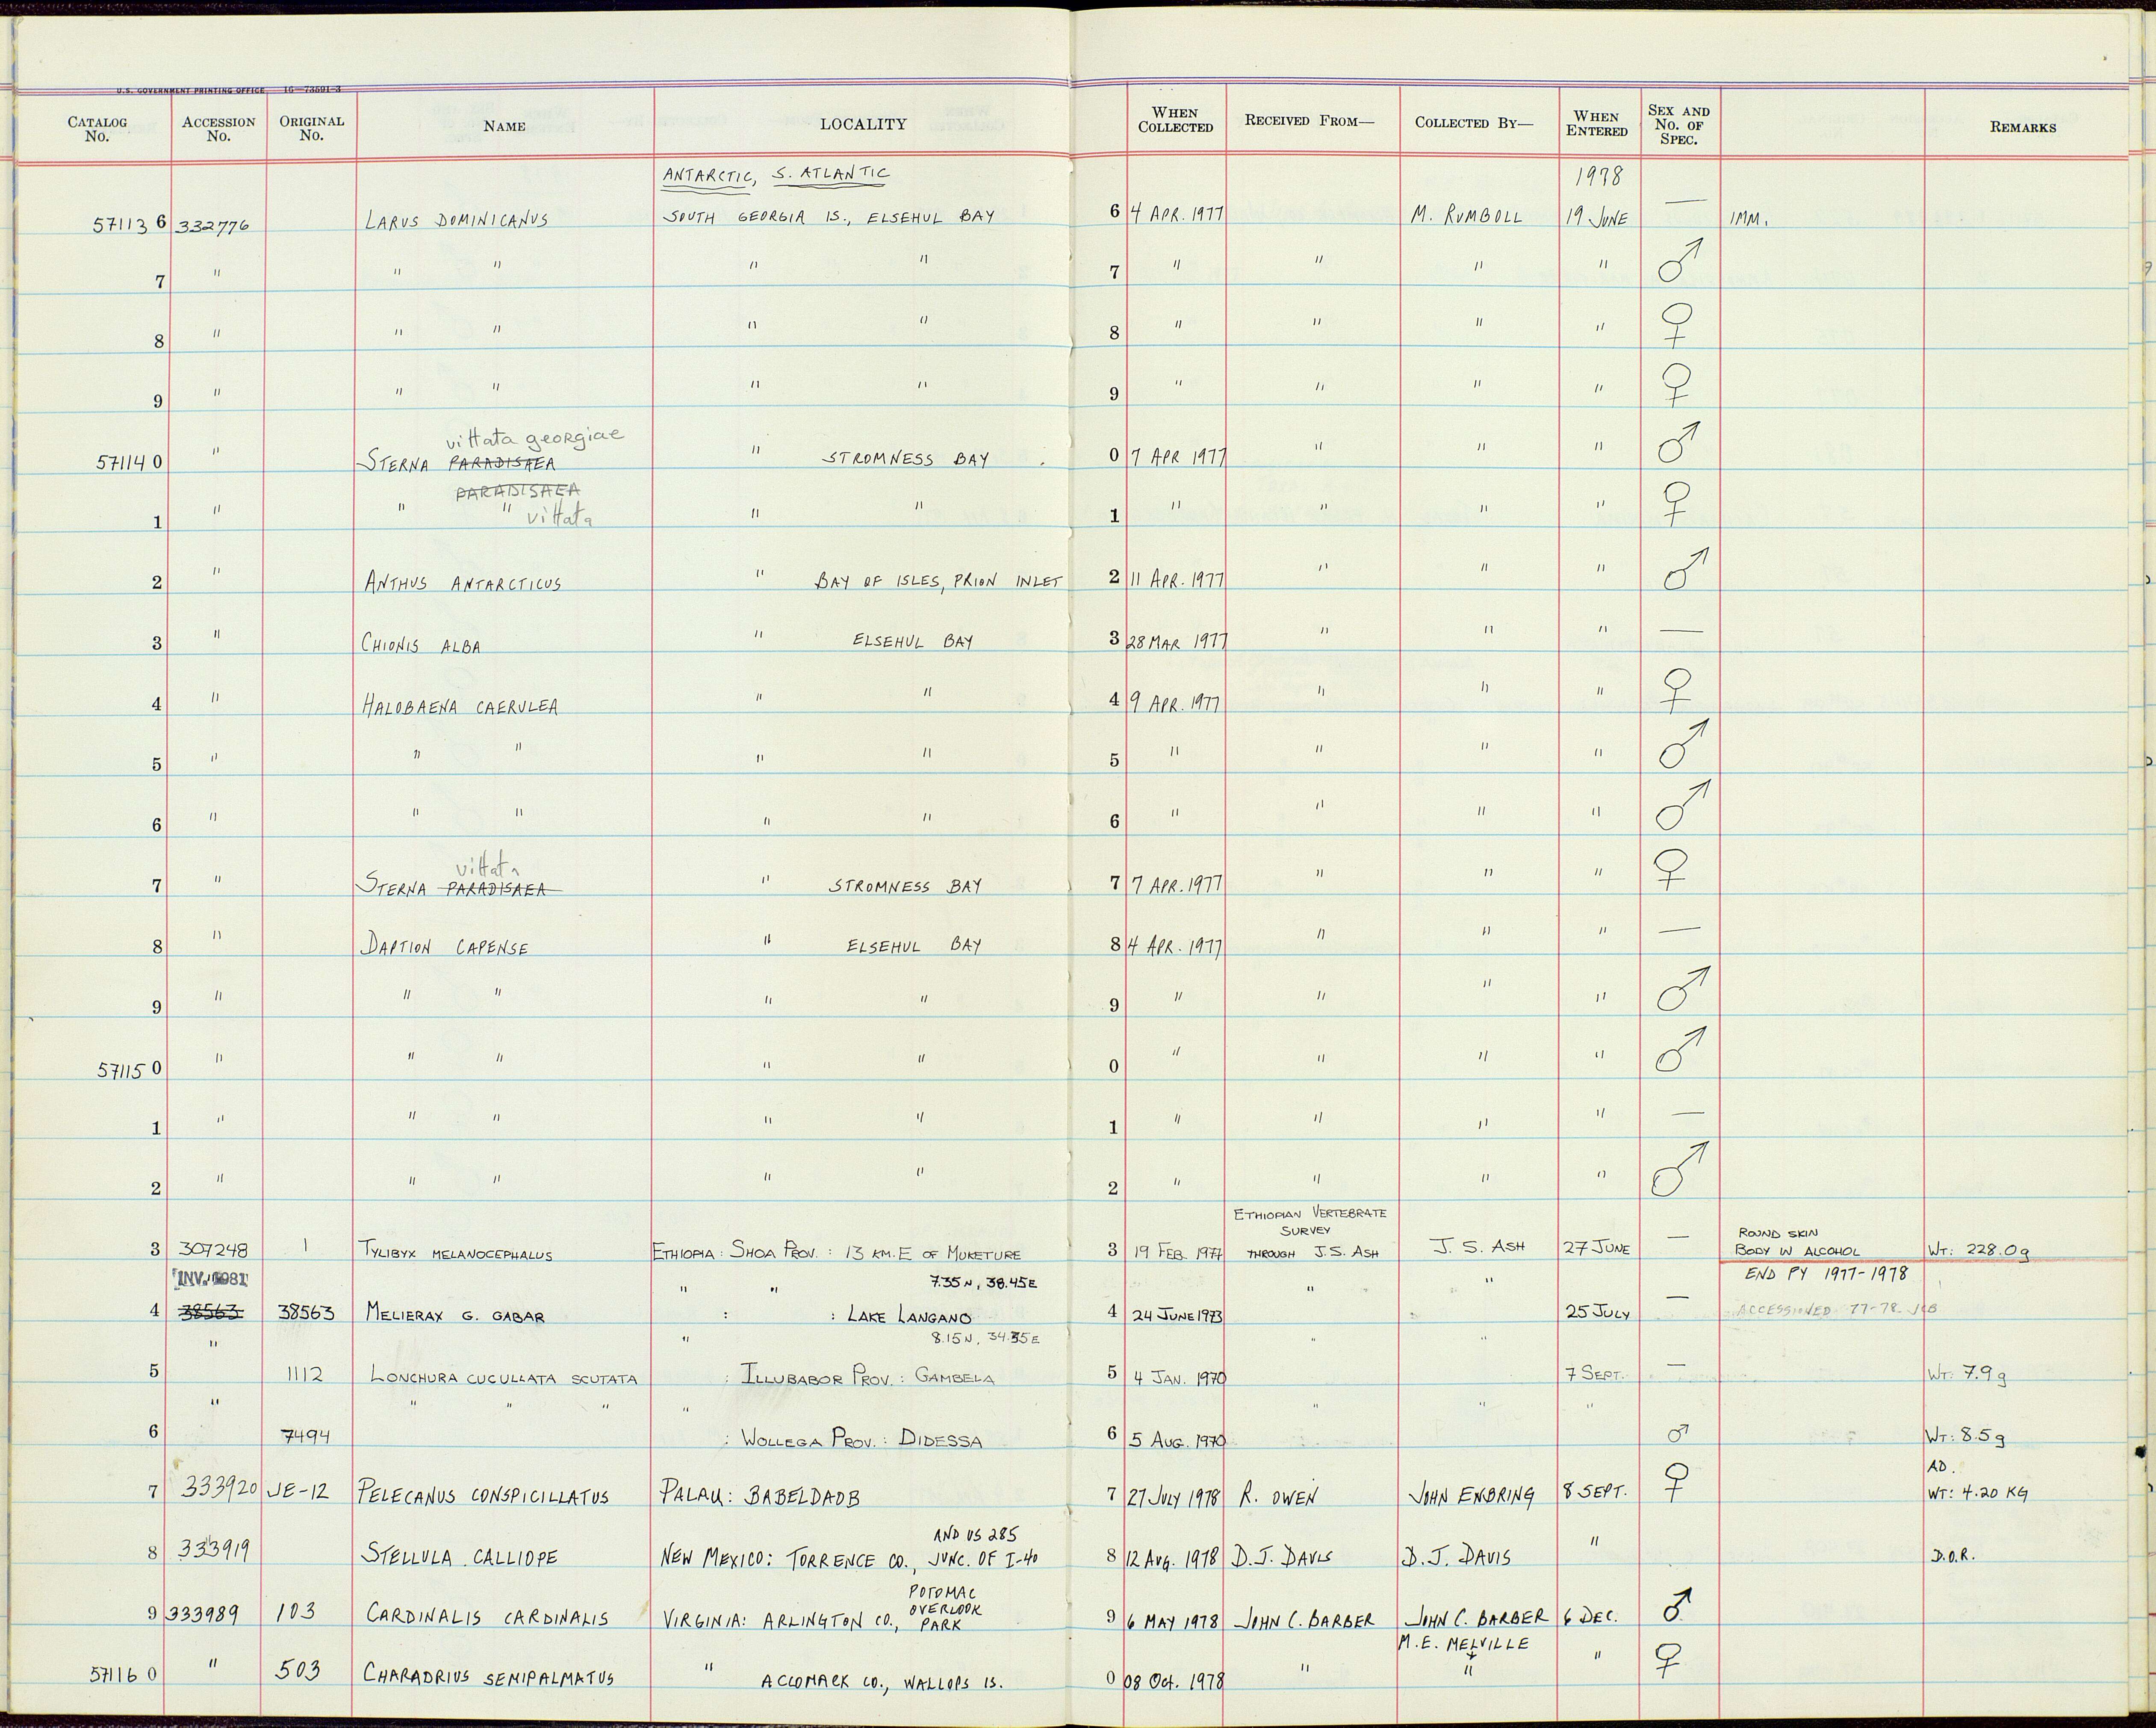 U.S. GOVERNMENT PRINTING OFFICE 16—73591-3
CATALOG No. ACCESSION No. ORIGINAL No. NAME LOCALITY WHEN COLLECTED RECEIVED FROM— COLLECTED BY— WHEN ENTERED SEX AND No. OF SPEC. REMARKS
ANTARCTIC, S. ATLANTIC 1978
57113 6 332776 LARUS DOMINICANUS SOUTH GEORGIA IS., ELSEHUL BAY 6 4 APR. 1977 M. RUMBOLL 19 JUNE — IMM.
7 " " " " " 7 " " " " ♂
8 " " " " " 8 " " " " ♀
9 " " " " " 9 " " " " ♀
vittata georgiae
57114 0 " STERNA PARADISAEA " STROMNESS BAY 0 7 APR 1977 " " " ♂
PARADISAEA
1 " " " vittata " " 1 " " " " ♀
2 " ANTHUS ANTARCTICUS " BAY OF ISLES, PRION INLET 2 11 APR. 1977 " " " ♂
3 " CHIONIS ALBA " ELSEHUL BAY 3 28 MAR 1977 " " " —
4 " HALOBAENA CAERULEA " " 4 9 APR. 1977 " " " ♀
5 " " " " " 5 " " " " ♂
6 " " " " " 6 " " " " ♂
vittata
7 " STERNA PARADISAEA " STROMNESS BAY 7 7 APR. 1977 " " " ♀
8 " DAPTION CAPENSE " ELSEHUL BAY 8 4 APR. 1977 " " " —
9 " " " " " 9 " " " " ♂
57115 0 " " " " " 0 " " " " ♂
1 " " " " " 1 " " " " —
2 " " " " " 2 " " " " ♂
ETHIOPIAN VERTEBRATE
SURVEY ROUND SKIN
3 307248 1 TYLIBYX MELANOCEPHALUS ETHIOPIA: SHOA PROV.: 13 KM. E OF MUKETURE 3 19 FEB. 1977 THROUGH J.S. ASH J. S. ASH 27 JUNE — BODY W ALCOHOL WT: 228.0g
INV. 1981 " " 7.35N, 38.45E " " END PY 1977-1978
4 38563 38563 MELIERAX G. GABAR : : LAKE LANGANO 4 24 JUNE 1973 25 JULY — ACCESSIONED 77-78. JCB
" " 8.15N, 34.35E " "
5 1112 LONCHURA CUCULLATA SCUTATA : ILLUBABOR PROV.: GAMBELA 5 4 JAN. 1970 7 SEPT. — WT: 7.9g
" " " " " " " "
6 7494 : WOLLEGA PROV.: DIDESSA 6 5 AUG. 1970 ♂ WT: 8.5g
AD.
7 333920 JE-12 PELECANUS CONSPICILLATUS PALAU: BABELDAOB 7 27 JULY 1978 R. OWEN JOHN ENGRING 8 SEPT. ♀ WT: 4.20 KG
AND US 285
8 333919 STELLULA CALLIOPE NEW MEXICO: TORRENCE CO., JUNC. OF I-40 8 12 AUG. 1978 D.J. DAVIS D.J. DAVIS " D.O.R.
POTOMAC
OVERLOOK
9 333989 103 CARDINALIS CARDINALIS VIRGINIA: ARLINGTON CO., PARK 9 6 MAY 1978 JOHN C. BARBER JOHN C. BARBER 6 DEC. ♂
M.E. MELVILLE
+
57116 0 " 503 CHARADRIUS SEMIPALMATUS " ACCOMACK CO., WALLOPS IS. 0 08 Oct. 1978 " " " ♀